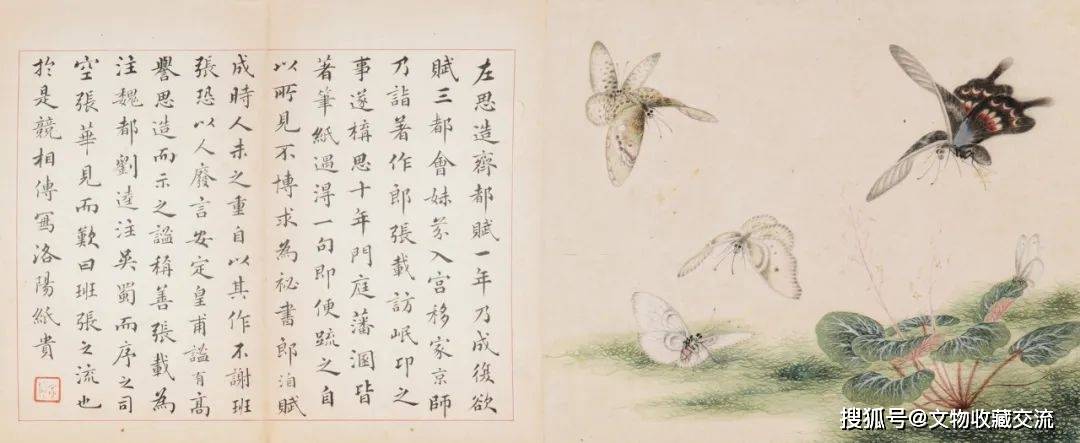 左思造齊都賦一年乃成復欲
賦三都會妹芬入宮移家京師
乃詣著作郎張載訪岷卭之
事遂構思十年門庭藩溷皆
著筆紙遇得一句即便疏之自
以所見不博求為祕書郎洎賦
成時人未之重自以其作不謝班
張恐以人廢言安定皇甫謐有高
譽思造而示之謐稱善張載為
注魏都劉逵注吳蜀而序之司
空張華見而歎曰班張之流也
於是競相傳寫洛陽紙貴
搜狐号@文物收藏交流